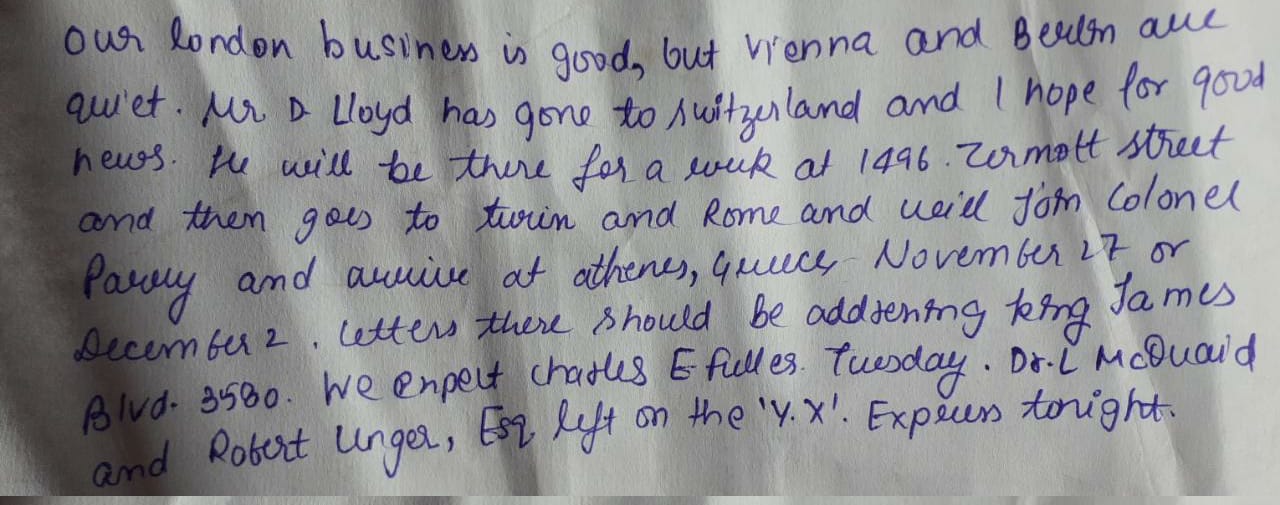 our london business is good, but Vienna and Berlin are
quiet. Mr D Lloyd has gone to switzerland and I hope for good
news. He will be there for a week at 1496. Zermott street
and then goes to turin and Rome and will join Colonel
Parry and arrive at athenes, Greece November 27 or
December 2. letters there should be addressing king James
Blvd. 3580. We enpect charles E fulles. Tuesday. Dr. L McQuaid
and Robert Unger, Esq left on the 'Y.X'. Express tonight.